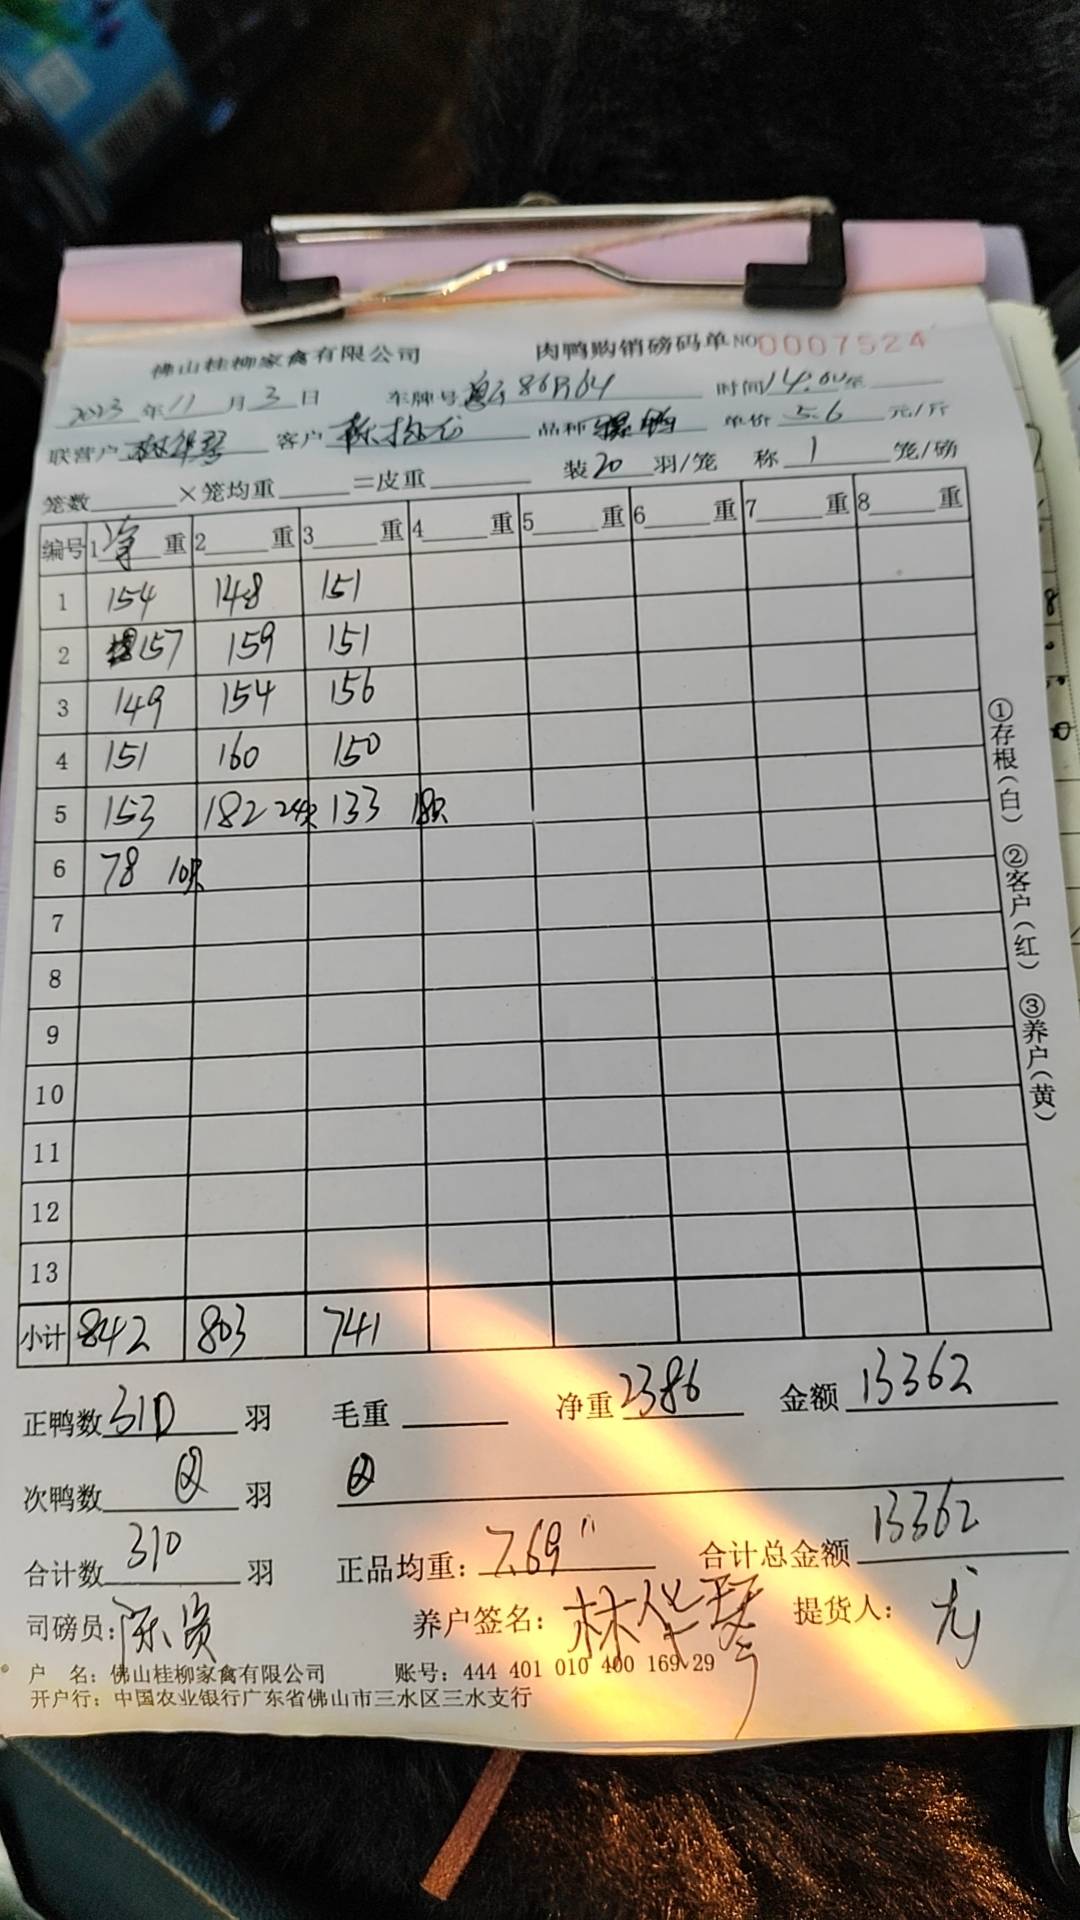 佛山桂柳家禽有限公司 肉鸭购销磅码单 NO0007524
2023年11月3日 车牌号 86R64 时间14:00至
联营户 林华琴 客户 品种 单价5.6元/斤
笼数 ×笼均重 =皮重 装20羽/笼 称1笼/磅
编号 1净重 2重 3重 4重 5重 6重 7重 8重
1 154 148 151
2 157 159 151
3 149 154 156
4 151 160 150
5 153 182 24只 133 18只
6 78 10只
7
8
9
10
11
12
13
小计 842 803 741
①存根(白) ②客户(红) ③养户(黄)
正鸭数310羽 毛重 净重2386 金额13362
次鸭数 羽
合计数310羽 正品均重:7.69" 合计总金额13362
司磅员: 养户签名:林华琴 提货人:龙
户 名:佛山桂柳家禽有限公司 账号:444 401 010 400 169 29
开户行:中国农业银行广东省佛山市三水区三水支行